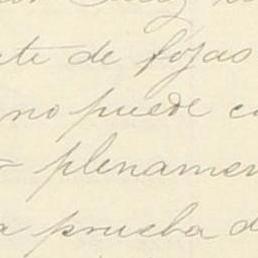 te de fojas
no puede co
plenamen
a prueba d